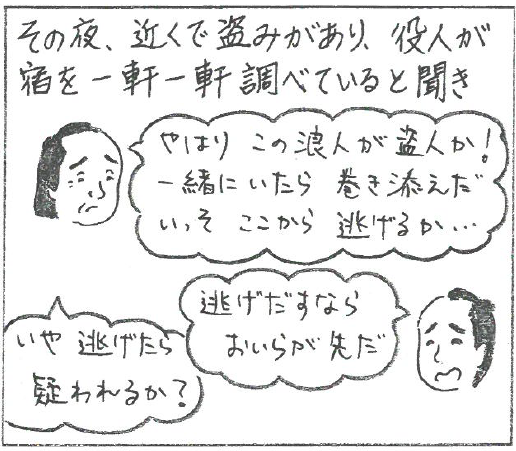 その夜、近くで盗みがあり、役人が
宿を一軒一軒調べていると聞き
やはりこの浪人が盗人か!
一緒にいたら巻き添えだ
いっそここから逃げるか…
逃げだすなら
おいらが先だ
いや逃げたら
疑われるか?